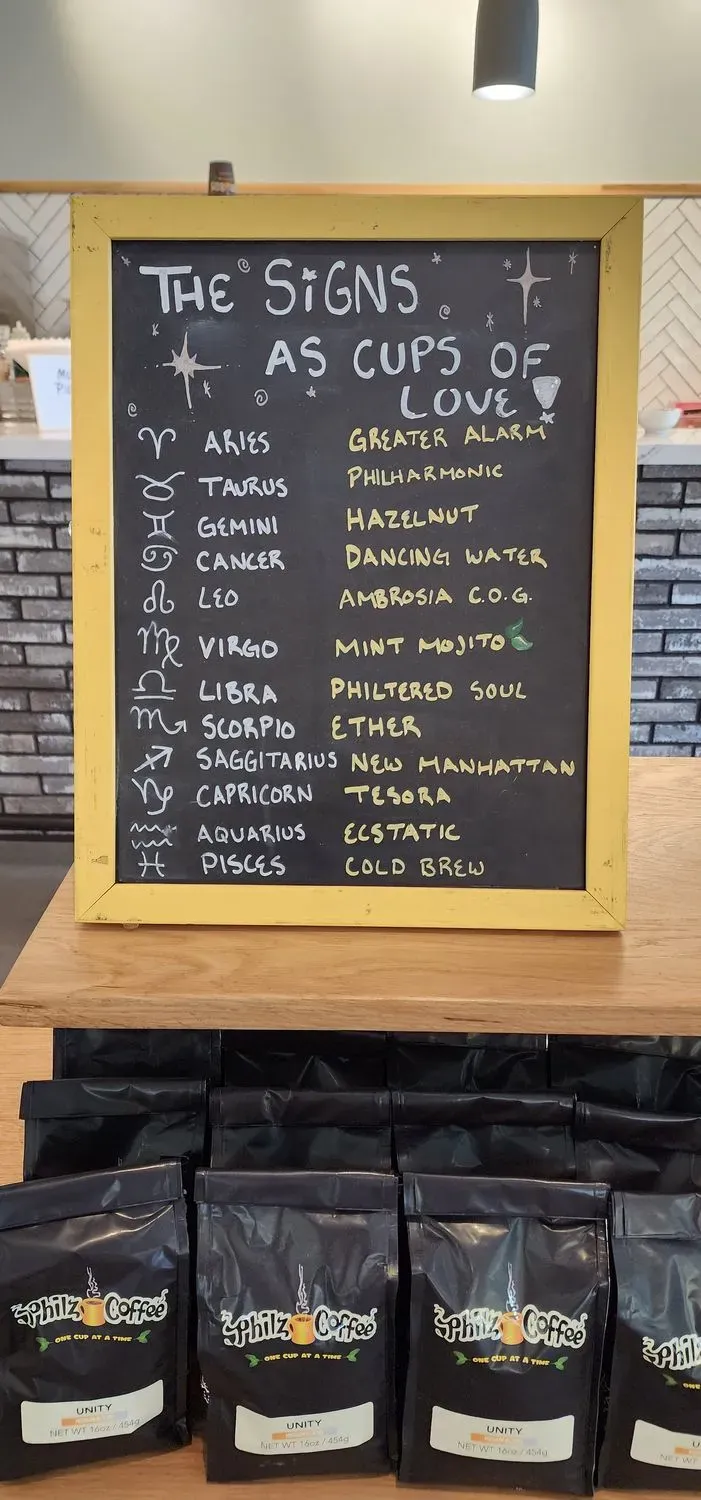 THE SIGNS
AS CUPS OF
LOVE
ARIES GREATER ALARM
TAURUS PHILHARMONIC
GEMINI HAZELNUT
CANCER DANCING WATER
LEO AMBROSIA C.O.G.
VIRGO MINT MOJITO
LIBRA PHILTERED SOUL
SCORPIO ETHER
SAGGITARIUS NEW MANHATTAN
CAPRICORN TESORA
AQUARIUS ECSTATIC
PISCES COLD BREW
Philz Coffee
ONE CUP AT A TIME
UNITY
NET WT 16oz / 454g
Philz Coffee
ONE CUP AT A TIME
UNITY
NET WT 16oz / 454g
Philz Coffee
ONE CUP AT A TIME
UNITY
NET WT 16oz / 454g
Phil
ONE
U
NET WT